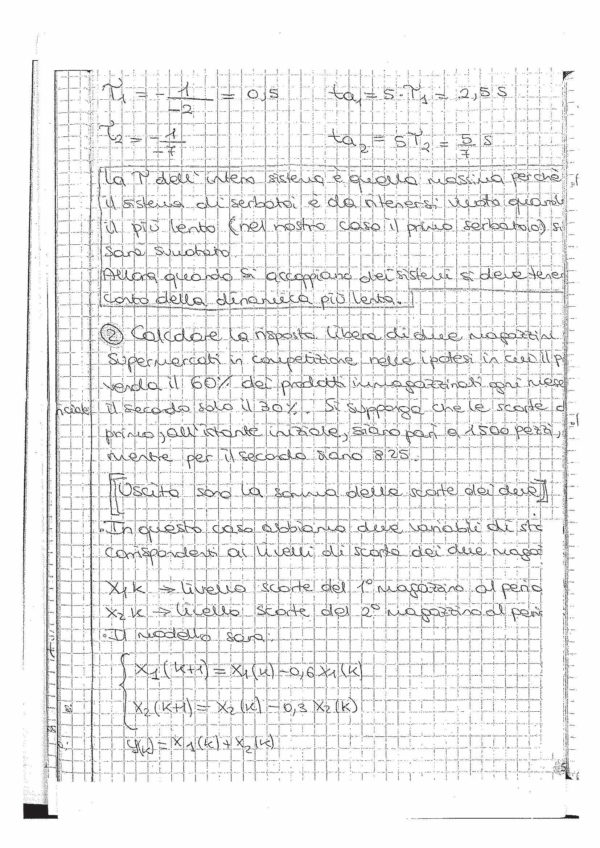 τ1 = - 1/-2 = 0,5    ta1 = 5·τ1 = 2,5 s
τ2 = - 1/-7    ta2 = 5τ2 = 5/7 s
La τ dell'intero sistema è quella massima perchè
il sistema di serbatoi è da ritenersi vuoto quando
il più lento (nel nostro caso il primo serbatoio) si
sarà svuotato.
Allora quando si accoppiano dei sistemi si deve tener
conto della dinamica più lenta.
② Calcolare la risposta libera di due magazzini
supermercati in competizione nelle ipotesi in cui il p
venda il 60% dei prodotti immagazzinati ogni mese
il secondo solo il 30%. Si supponga che le scorte d
primo, all'istante iniziale, siano pari a 1500 pezzi,
mentre per il secondo siano 825.
[Uscita sono la somma delle scorte dei due]
· In questo caso abbiamo due variabili di sta
corrispondenti ai livelli di scorte dei due magaz
X1k → livello scorte del 1° magazzino al perio
X2k → livello scorte del 2° magazzino al peri
· Il modello sarà:
X1(k+1) = X1(k) - 0,6 X1(k)
X2(k+1) = X2(k) - 0,3 X2(k)
y(k) = X1(k) + X2(k)